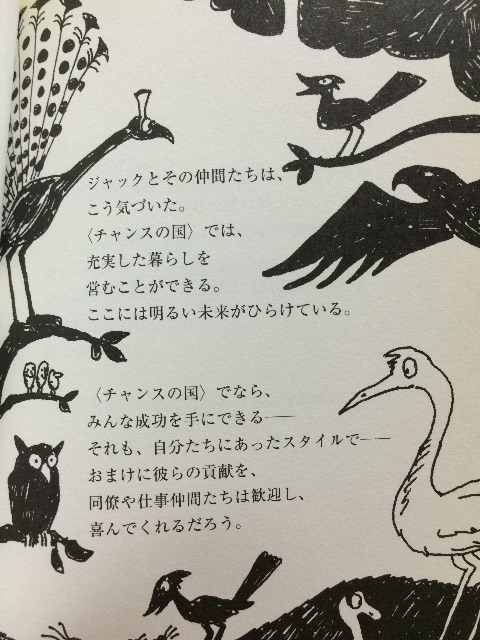 ジャックとその仲間たちは、
こう気づいた。
〈チャンスの国〉では、
充実した暮らしを
営むことができる。
ここには明るい未来がひらけている。
〈チャンスの国〉でなら、
みんな成功を手にできる──
それも、自分たちにあったスタイルで──
おまけに彼らの貢献を、
同僚や仕事仲間たちは歓迎し、
喜んでくれるだろう。